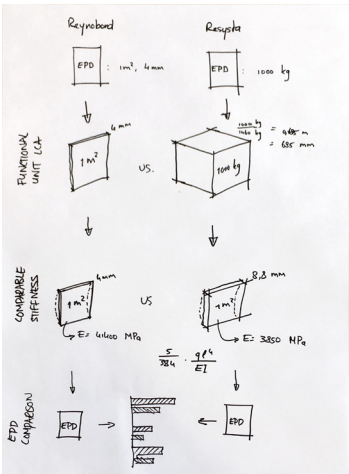 Reynobond
Resysta
EPD : 1m², 4mm
EPD : 1000 kg
FUNCTIONAL
UNIT LCA
4mm
1 m²
VS.
1000 kg
1000 kg
1460 kg
= 0,685 m
= 685 mm
COMPARABLE
STIFFNESS
4mm
1 m²
E = 41400 MPa
VS
8,8 mm
1 m²
E = 3850 MPa
5
384
·
qℓ⁴
EI
EPD
COMPARISON
EPD
EPD